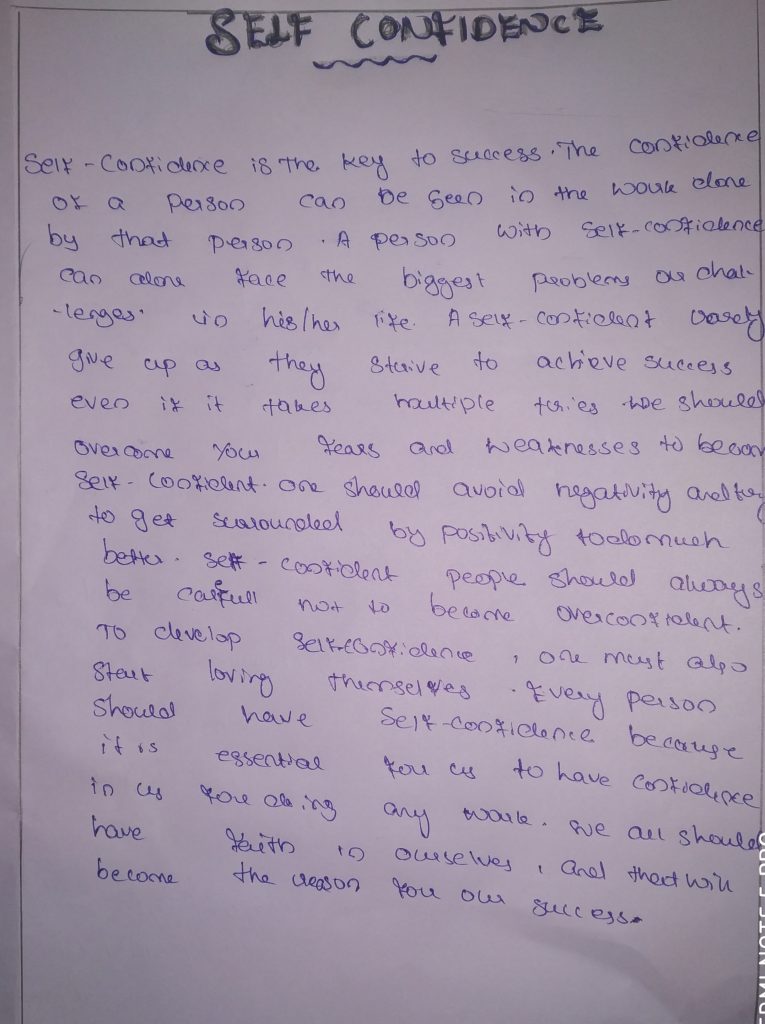 SELF CONFIDENCE
Self-Confidence is the key to success. The confidence
of a person can be seen in the work done
by that person. A person with self-confidence
can alone face the biggest problems or chal-
-lenges in his/her life. A self-confident rarely
give up as they strive to achieve success
even if it takes multiple tries. We should
overcome your fears and weaknesses to becom
self-confident. one should avoid negativity and try
to get surrounded by positivity to do much
better. self-confident people should always
be carefull not to become overconfident.
To develop self-confidence, one must also
start loving themselves. Every person
should have self-confidence because
it is essential for us to have confidence
in us for doing any work. we all should
have faith in ourselves, and that will
become the reason for our success.